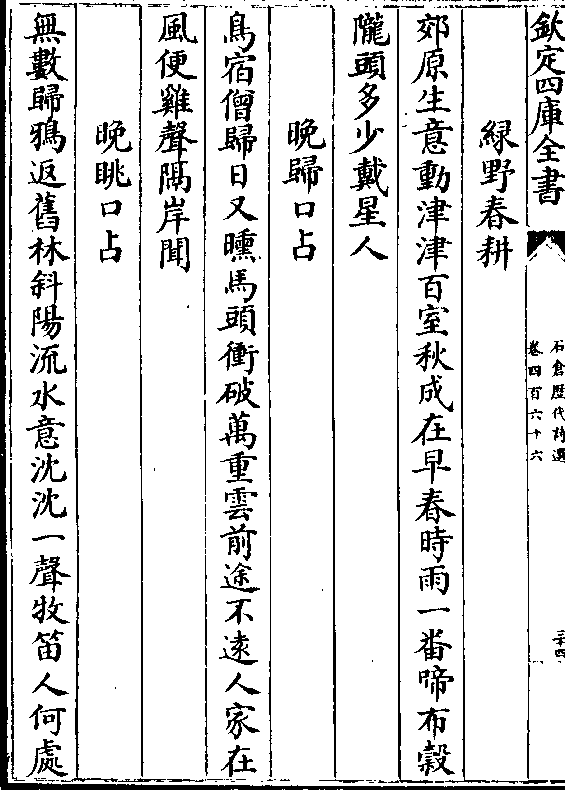 欽定四庫全書
石倉歴代詩選
卷四百六十六
二十四
緑野春耕
郊原生意動津津百室秋成在早春時雨一番啼布榖
隴頭多少戴星人
晚歸口占
鳥宿僧歸日又曛馬頭衝破萬重雲前途不逺人家在
風便雞聲隔岸聞
晚眺口占
無數歸鴉返舊林斜陽流水意沈沈一聲牧笛人何處